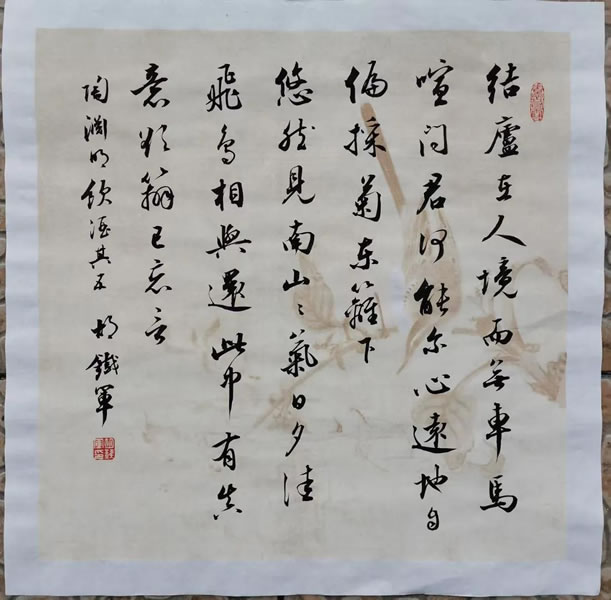 結廬在人境而無車馬
喧問君何能尔心遠地自
偏採菊东籬下
悠然見南山〻氣日夕佳
飛鳥相與還此中有真
意欲辯已忘言
陶渊明飲酒其五 胡鐵軍